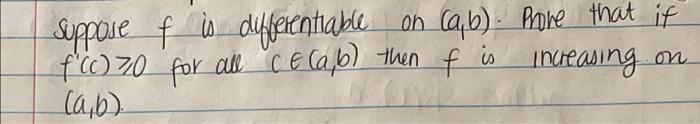 Suppose f is differentiable on (a,b). Prove that if
f'(c) ⩾ 0 for all c ∈ (a,b) then f is increasing on
(a,b).